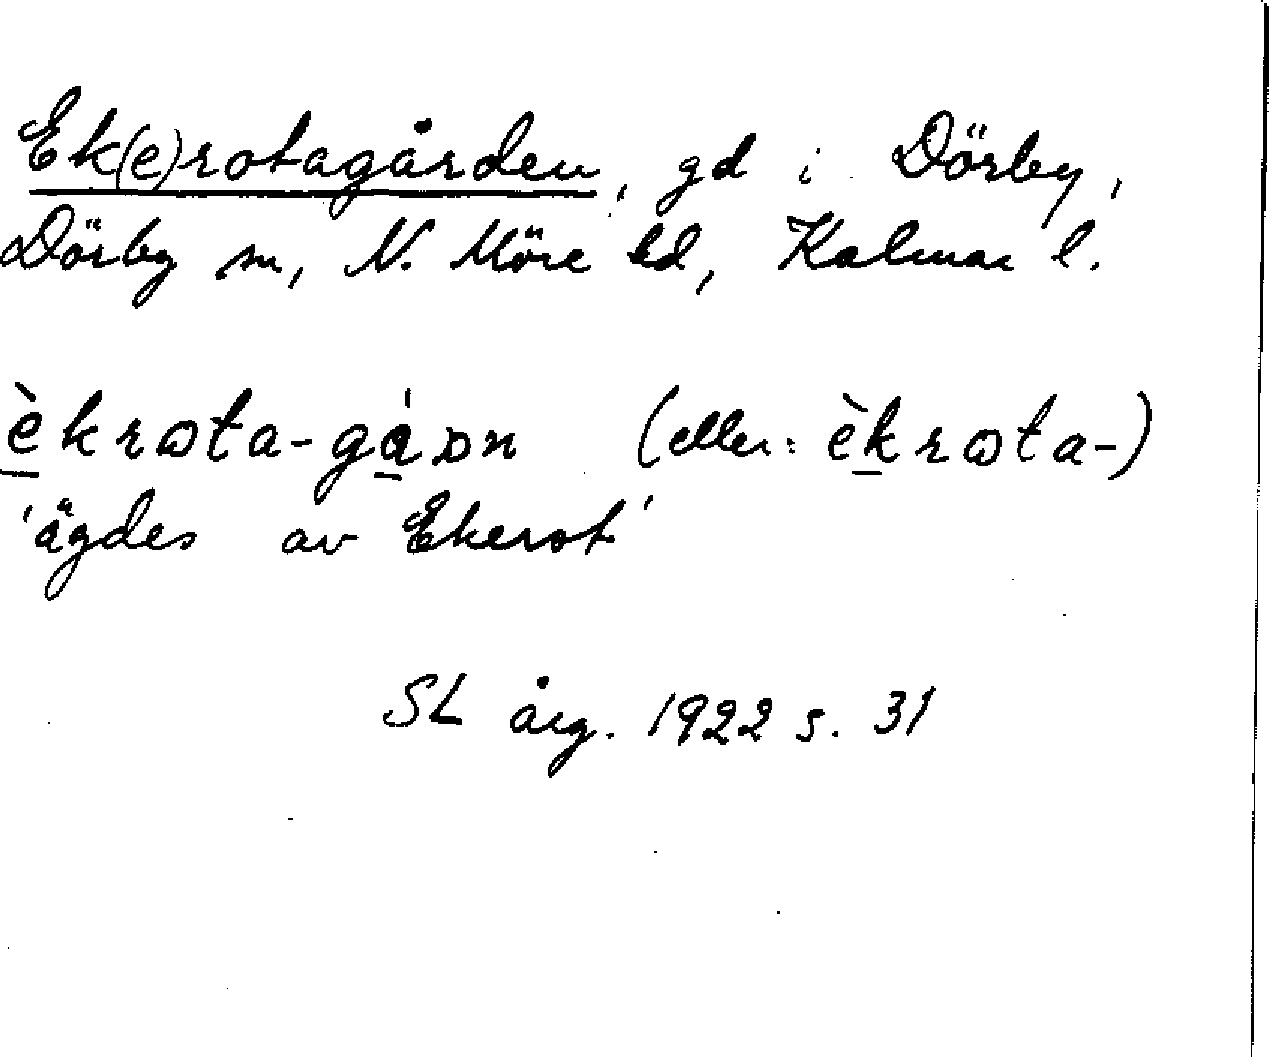 Ek(e)rotagården, gd i Dörby,
Dörby sn, N. Möre hd, Kalmar l.
èkrωta-gá̱ɒn (eller: èḵrωta-)
'ägdes av Ekerot'
SL årg. 1922 s. 31